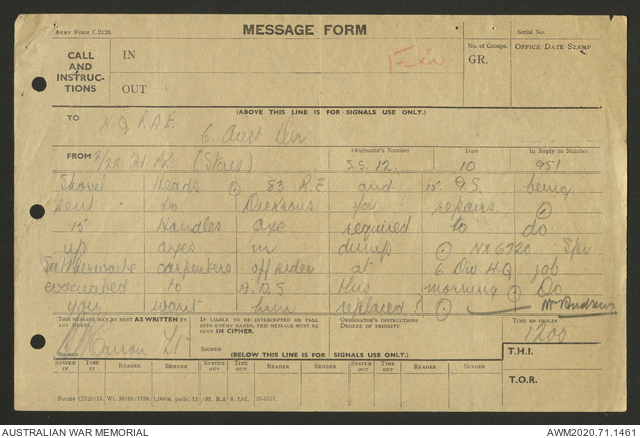 ARMY FORM C.2128.
MESSAGE FORM
Serial No.
CALL AND INSTRUCTIONS
IN
OUT
No. of Groups.
GR.
OFFICE DATE STAMP
(ABOVE THIS LINE IS FOR SIGNALS USE ONLY.)
TO
H.Q R.A.E. 6 Aust Div
FROM 2/22 Fd Pk (Stores)
Originator's Number
S.S. 12
Date
10
In Reply to Number
951
Shovel Heads 83 R.E and 15 G.S. being
sent to for repairs.
15 Handles axe required to do
up axes in dump NX6720 Spr
carpenters offsider at 6 Div H.Q job
evacuated to A.D.S this morning Do
you want him replaced.
THIS MESSAGE MAY BE SENT AS WRITTEN BY ANY MEANS.
IF LIABLE TO BE INTERCEPTED OR FALL INTO ENEMY HANDS, THIS MESSAGE MUST BE SENT IN CIPHER.
ORIGINATOR'S INSTRUCTIONS DEGREE OF PRIORITY
TIME OF ORIGIN
1200
SIGNED Lt
SIGNED
(BELOW THIS LINE IS FOR SIGNALS USE ONLY.)
T.H.I.
SYSTEM IN TIME IN READER SENDER SYSTEM OUT TIME OUT READER SENDER SYSTEM OUT TIME OUT READER SENDER
T.O.R.
AUSTRALIAN WAR MEMORIAL
AWM2020.71.1461